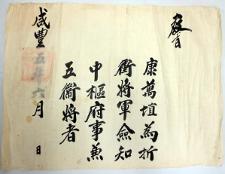 敎旨
康萬埴為折
衝將軍僉知
中樞府事兼
五衛將者
咸豐五年六月 日